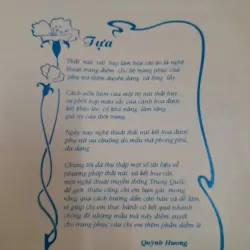 Tựa
Thắt nút nơ hay làm hoa cài áo là nghệ
thuật trang điểm cho bộ trang phục của
phụ nữ thêm duyên dáng và lộng lẫy
Cách uốn lượn của một nơ thắt hay
sự phối hợp màu sắc của cánh hoa được
kết khéo léo, có khả năng làm tăng
giá trị của thời trang
Ngày nay nghệ thuật thắt nút kết hoa được
phụ nữ ưa chuộng do mẫu mã phong phú,
đa dạng
Chúng tôi đã thu thập một số tài liệu về
phương pháp thắt nút và kết hoa của
một nghệ thuật truyền thống Trung Quốc
để giới thiệu cùng chị em bạn gái mong
rằng qua cách hướng dẫn căn bản và dễ làm
sẽ giúp chị em thực hành có kết quả nhanh
chóng để những mẫu mã này điểm xuyết
cho trang phục của chị em thêm phần diễm lệ
Quỳnh Hương